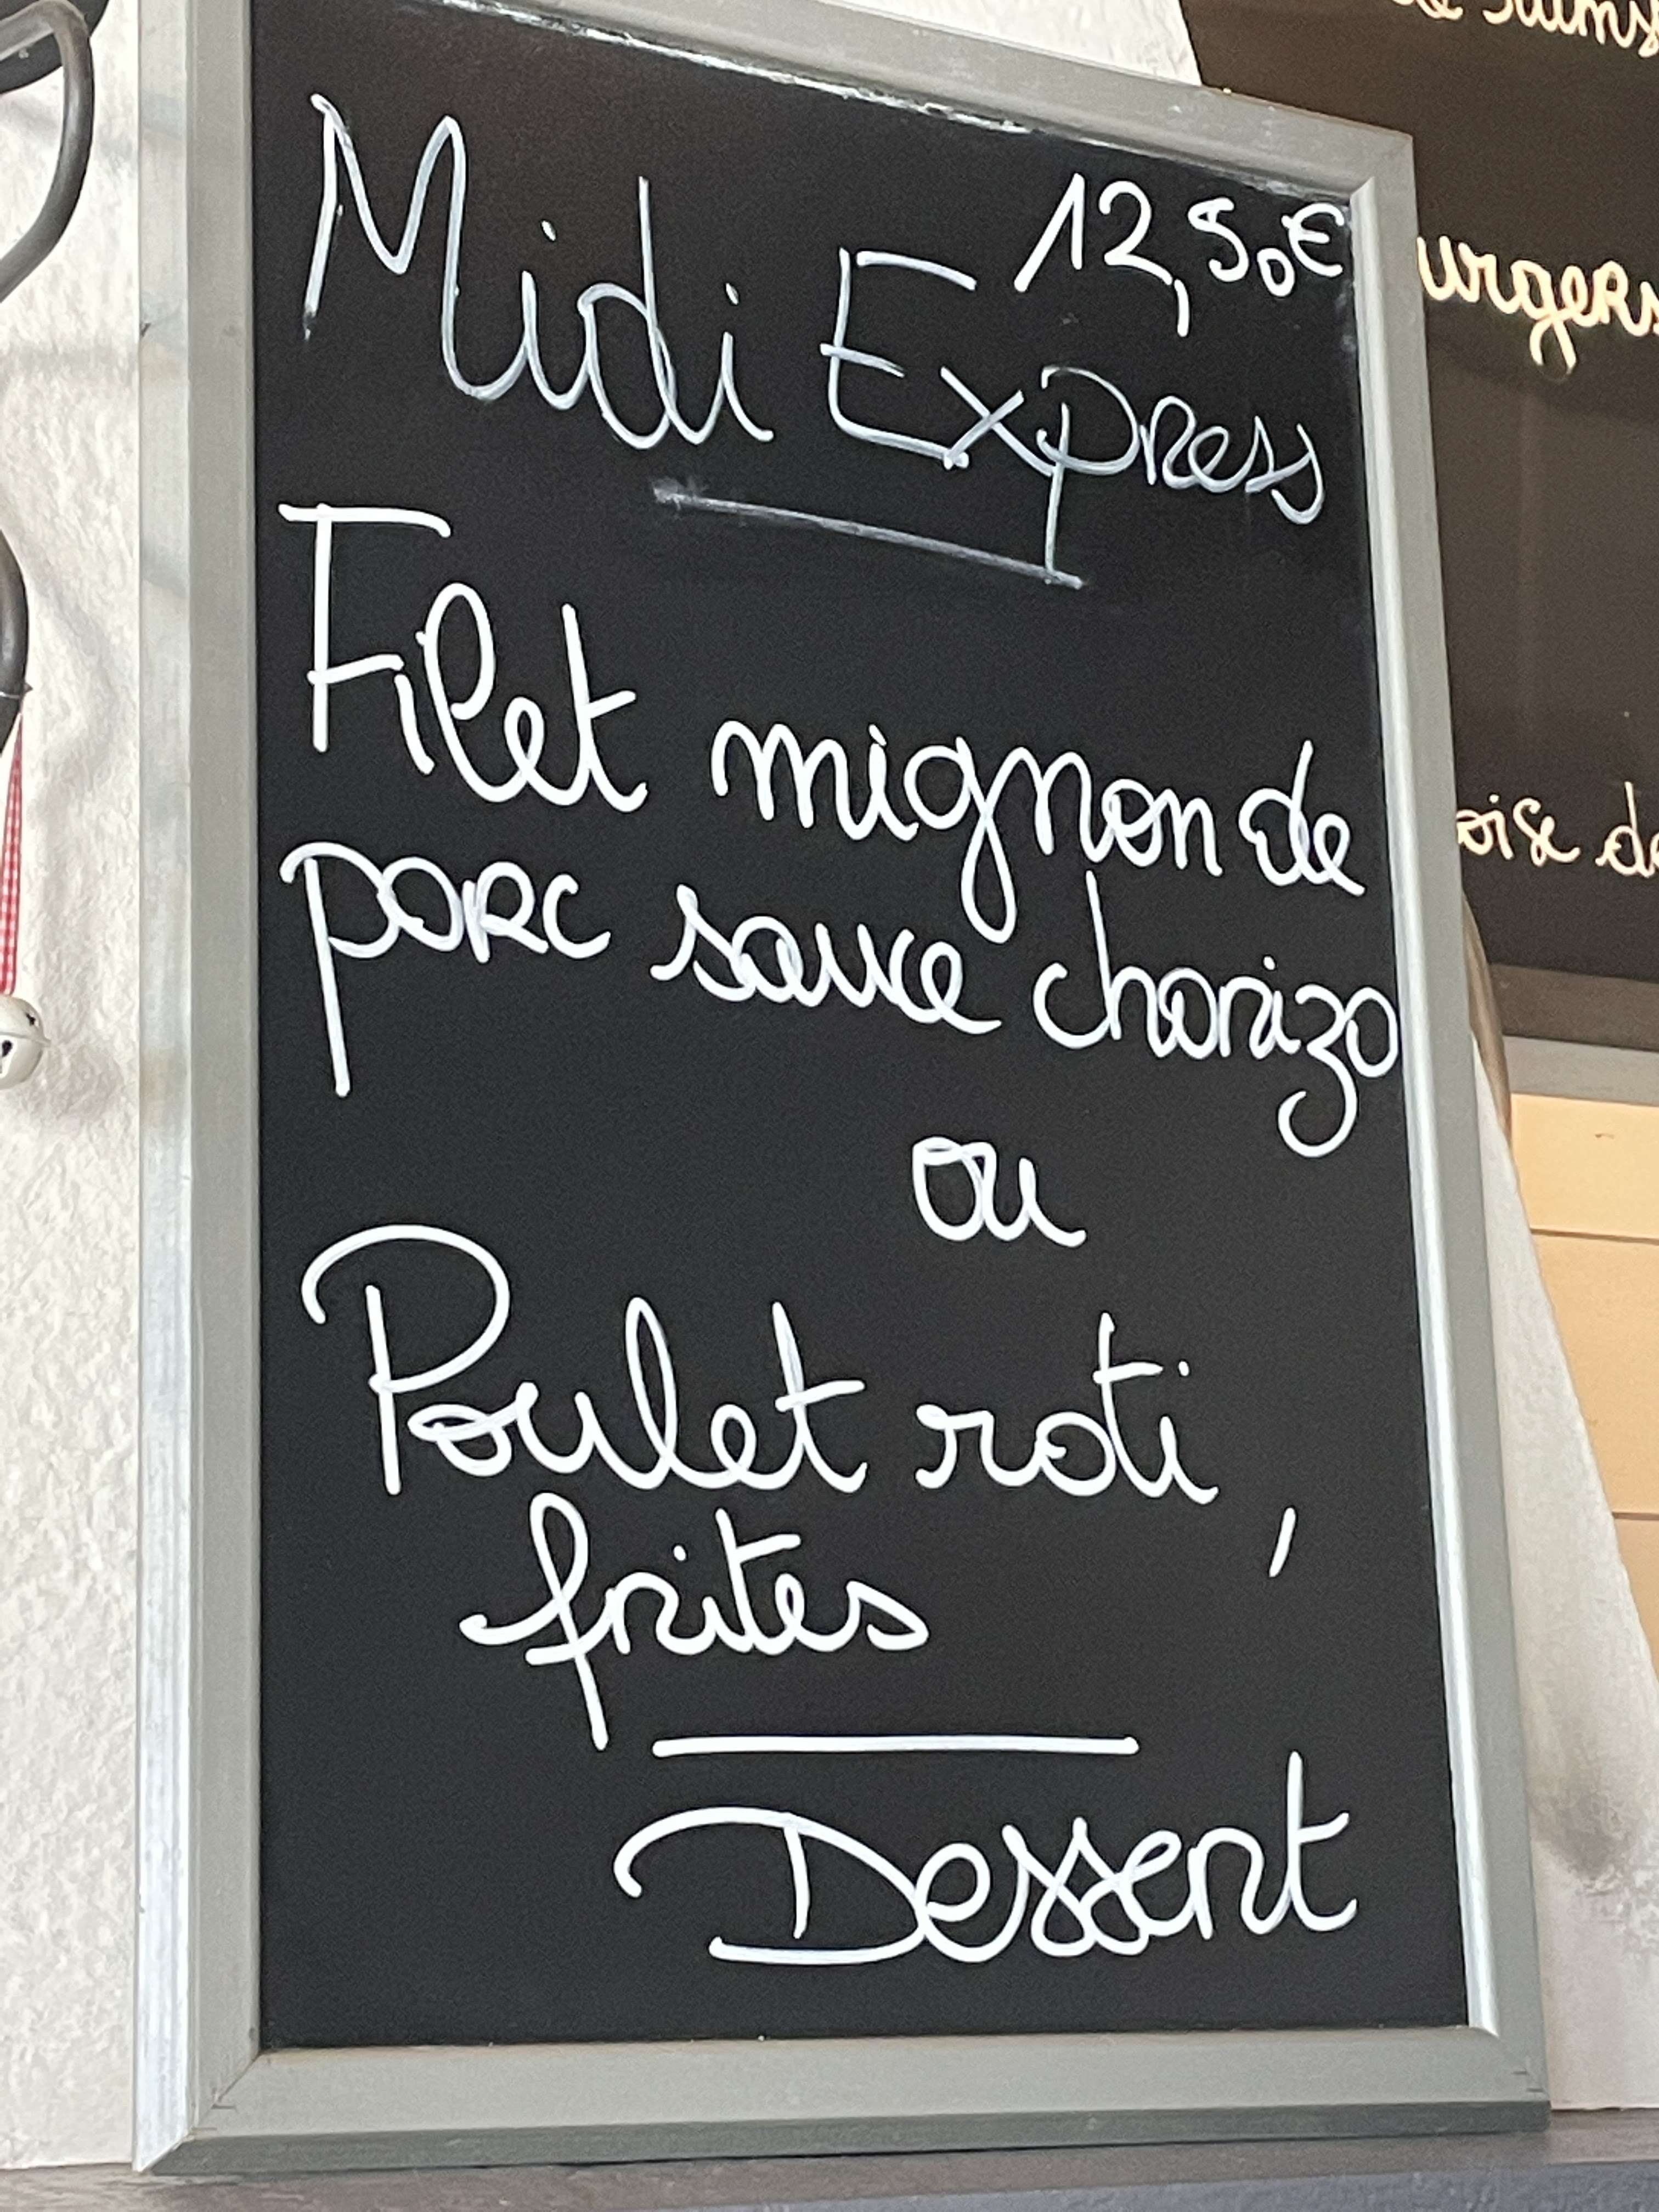 12,50€
Midi Express
Filet mignon de
porc sauce chorizo
ou
Poulet roti,
frites
Dessert
urgers
oise de